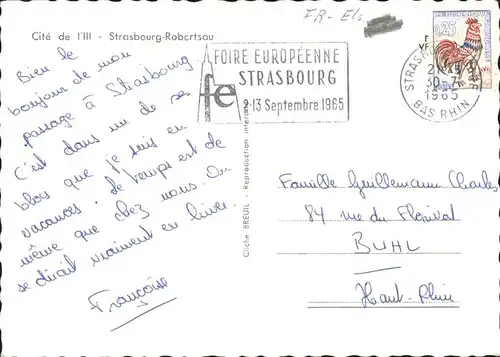 Cité de l'Ill - Strasbourg-Robertsau
FR-Els
Bien le
bonjour de mon
passage à Strasbourg
C'est dans un de ses
blocs que je suis en
vacances. Le temps est de
même que chez nous. On
se dirait vraiment en hiver.
Françoise
Cliché BREUIL - Reproduction
FOIRE EUROPÉENNE
STRASBOURG
fe
2-13 Septembre 1965
0,25
30-7
1965
BAS RHIN
Famille Guillemann Charles
84 rue du Florival
BUHL
Haut-Rhin